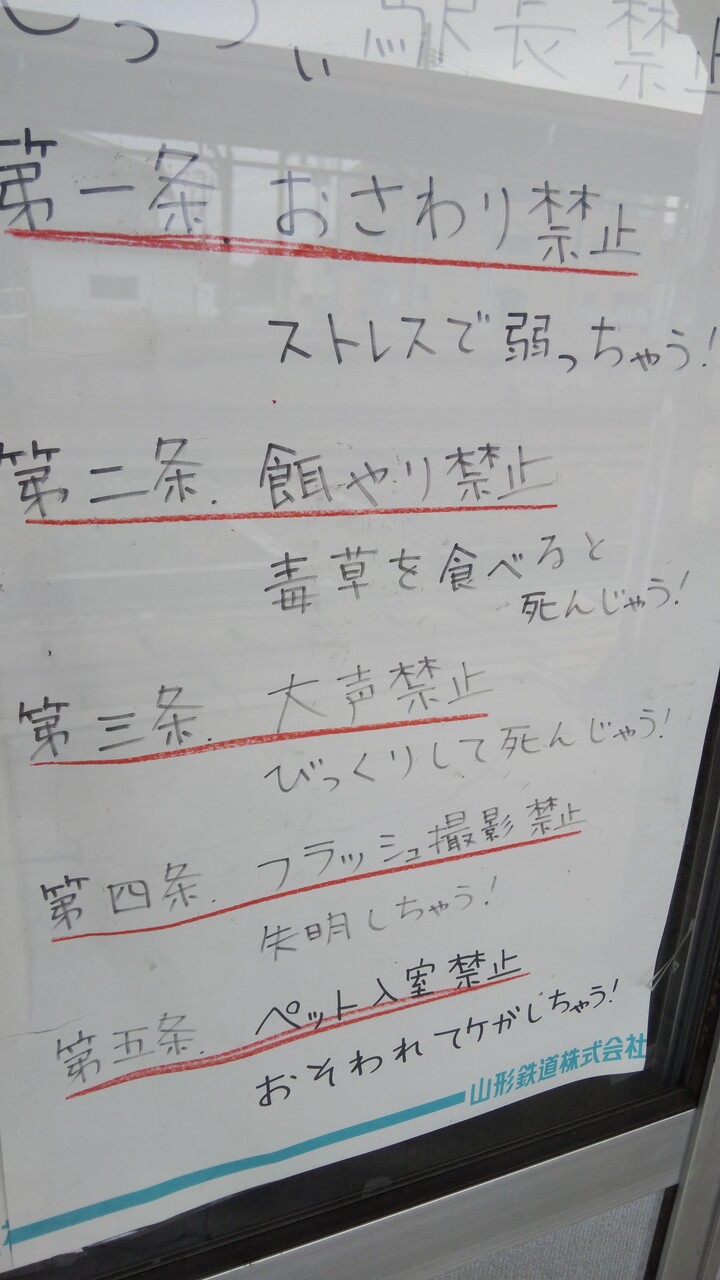 駅長禁止
第一条. おさわり禁止
ストレスで弱っちゃう!
第二条. 餌やり禁止
毒草を食べると
死んじゃう!
第三条. 大声禁止
びっくりして死んじゃう!
第四条. フラッシュ撮影禁止
失明しちゃう!
第五条. ペット入室禁止
おそわれてケガしちゃう!
山形鉄道株式会社